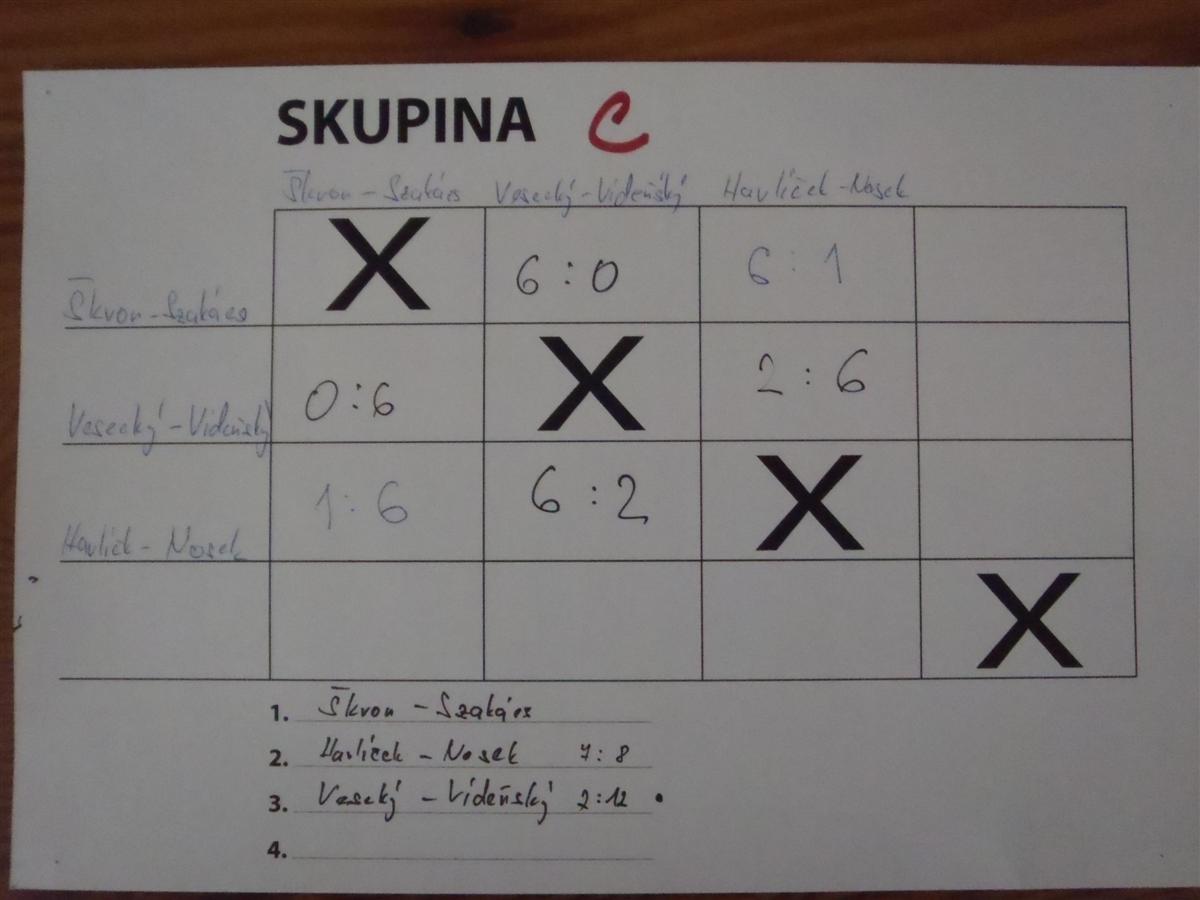 SKUPINA C
Škvon - Szakács Vesecký - Vídeňský Havlíček - Nosek
X 6 : 0 6 : 1
Škvon - Szakács
0 : 6 X 2 : 6
Vesecký - Vídeňský
1 : 6 6 : 2 X
Havlíček - Nosek
X
1. Škvon - Szakács
2. Havlíček - Nosek 7 : 8
3. Vesecký - Vídeňský 2 : 12
4.